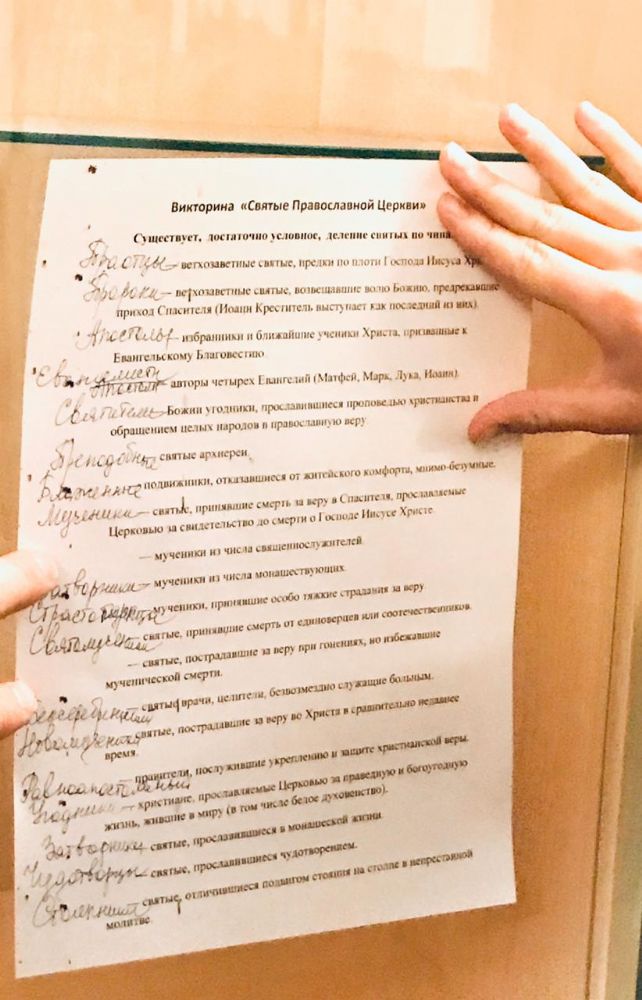 Викторина «Святые Православной Церкви»
Существует, достаточно условное, деление святых по
Праотцы – ветхозаветные святые, предки по плоти Господа Иисуса
Пророки – ветхозаветные святые, возвещавшие волю Божию, предрекавшие
приход Спасителя (Иоанн Креститель выступает как последний из них).
Апостолы – избранники и ближайшие ученики Христа, призванные к
Евангельскому Благовестию.
авторы четырех Евангелий (Матфей, Марк, Лука, Иоанн).
Святители – Божии угодники, прославившиеся проповедью христианства и
обращением целых народов в православную веру
Преподобные святые архиереи.
Блаженные – подвижники, отказавшиеся от житейского комфорта, мнимо-безумные.
Мученики – святые, принявшие смерть за веру в Спасителя, прославляемые
Церковью за свидетельство до смерти о Господе Иисусе Христе.
— мученики из числа священнослужителей.
Затворники – мученики из числа монашествующих.
мученики, принявшие особо тяжкие страдания за веру
святые, принявшие смерть от единоверцев или соотечественников.
— святые, пострадавшие за веру при гонениях, но избежавшие
мученической смерти.
святые врачи, целители, безвозмездно служащие больным.
святые, пострадавшие за веру во Христа в сравнительно недавнее
время.
правители, послужившие укреплению и защите христианской веры.
Угодники – христиане, прославляемые Церковью за праведную и богоугодную
жизнь, жившие в миру (в том числе белое духовенство).
Затворники святые, прославившиеся в монашеской жизни.
Чудотворцы – святые, прославившиеся чудотворением.
святые, отличившиеся подвигом стояния на столпе в непрестанной
молитве.